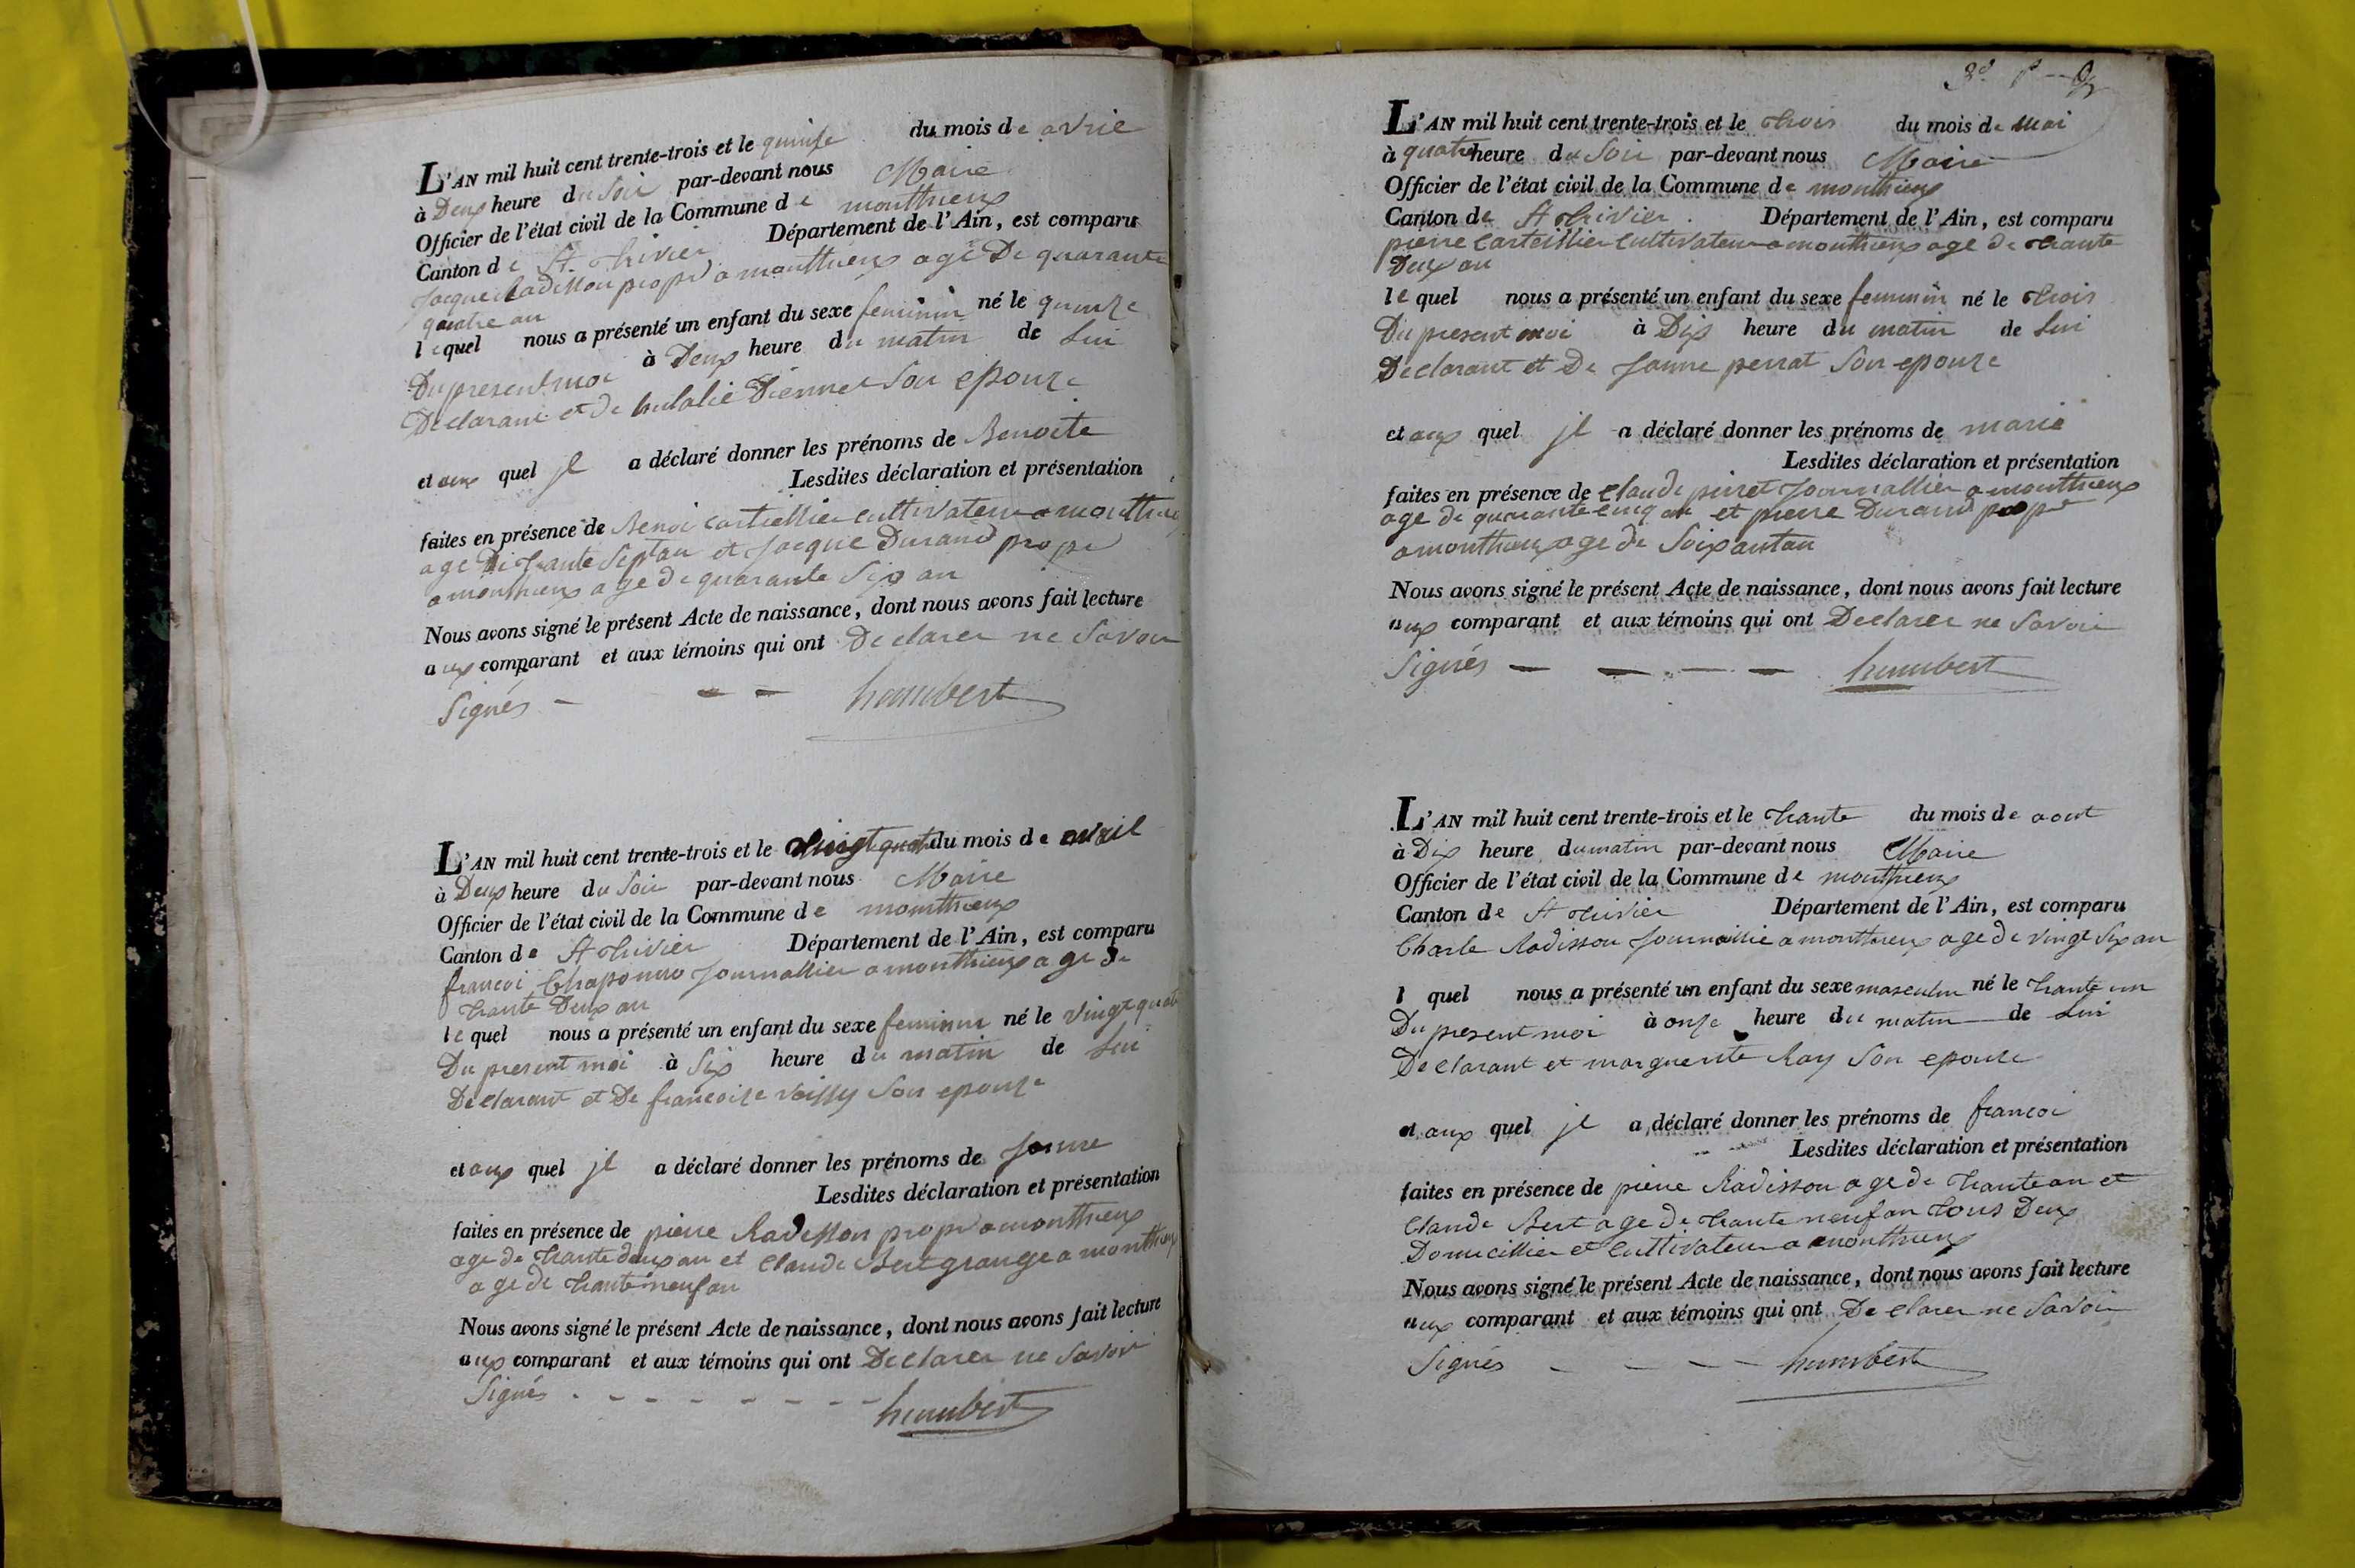 L'AN mil huit cent trente-trois et le quinze du mois de avril
à Deux heure du Soir par-devant nous Maire
Officier de l'état civil de la Commune de monthieux
Canton de St. trivier Département de l'Ain, est comparu
Jacque Radisson propr a monthieux agé De quarante
quatre an
lequel nous a présenté un enfant du sexe feminin né le quinze
Du present moi à Deux heure du matin de Lui
Declarant et de Eulalie Son epouze
et aux quel jl a déclaré donner les prénoms de Benoite
Lesdites déclaration et présentation
faites en présence de Benoi cultivateur a
age De trante Sept an et Jacque Durand propr
a monthieux age de quarante Six an
Nous avons signé le présent Acte de naissance, dont nous avons fait lecture
aux comparant et aux témoins qui ont Declarer ne Savoir
Signés - - - humbert
L'AN mil huit cent trente-trois et le vingt quatre du mois de avril
à Deux heure du Soir par-devant nous Maire
Officier de l'état civil de la Commune de monthieux
Canton de St trivier Département de l'Ain, est comparu
francoi Journallier a monthieux age de
trante Deux an
lequel nous a présenté un enfant du sexe feminin né le vingt quat
Du present moi à Six heure du matin de Lui
Declarant et De francoize Son epouze
et aux quel jl a déclaré donner les prénoms de Janne
Lesdites déclaration et présentation
faites en présence de pierre Radisson propr a monthieux
age de trante deux an et Claude Bert a monthieux
age de trante neuf an
Nous avons signé le présent Acte de naissance, dont nous avons fait lecture
aux comparant et aux témoins qui ont Declarer ne Savoir
Signés - - - - - - - humbert
L'AN mil huit cent trente-trois et le trois du mois de Mai
à quatre heure du Soir par-devant nous Maire
Officier de l'état civil de la Commune de monthieux
Canton de St trivier. Département de l'Ain, est comparu
pierre cultivateur a monthieux age de trante
Deux an
lequel nous a présenté un enfant du sexe feminin né le trois
Du present moi à Dix heure du matin de Lui
Declarant et De Janne perrat Son epouze
et aux quel jl a déclaré donner les prénoms de marie
Lesdites déclaration et présentation
faites en présence de Claude Journallier a monthieux
age de quarante cinq an et pierre Durand propr
a monthieux age de Soixantan
Nous avons signé le présent Acte de naissance, dont nous avons fait lecture
aux comparant et aux témoins qui ont Declarer ne Savoir
Signés - - - - humbert
L'AN mil huit cent trente-trois et le trante du mois de aout
à Dix heure du matin par-devant nous Maire
Officier de l'état civil de la Commune de monthieux
Canton de St trivier Département de l'Ain, est comparu
Charle Radisson Journallié a monthieux age de vingt Six an
l quel nous a présenté un enfant du sexe masculin né le trante un
Du present moi à onze heure du matin de Lui
Declarant et marguerite Ray Son epouze
et aux quel jl a déclaré donner les prénoms de francoi
Lesdites déclaration et présentation
faites en présence de pierre Radisson age de trante an et
Claude Bert age de trante neuf an tous Deux
Domicillier et Cultivateur a monthieux
Nous avons signé le présent Acte de naissance, dont nous avons fait lecture
aux comparant et aux témoins qui ont Declarer ne Savoir
Signés - - - - humbert